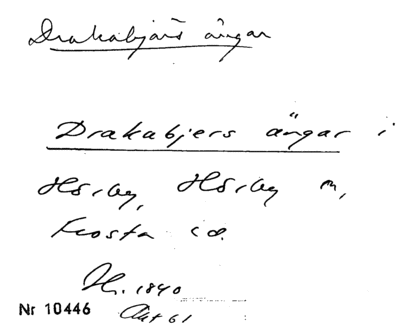 Drakabjärs ängar
Drakabjers ängar i
Hörby, Hörby sn,
Frosta hd.
H. 1840
Nr 10446 Akt 61